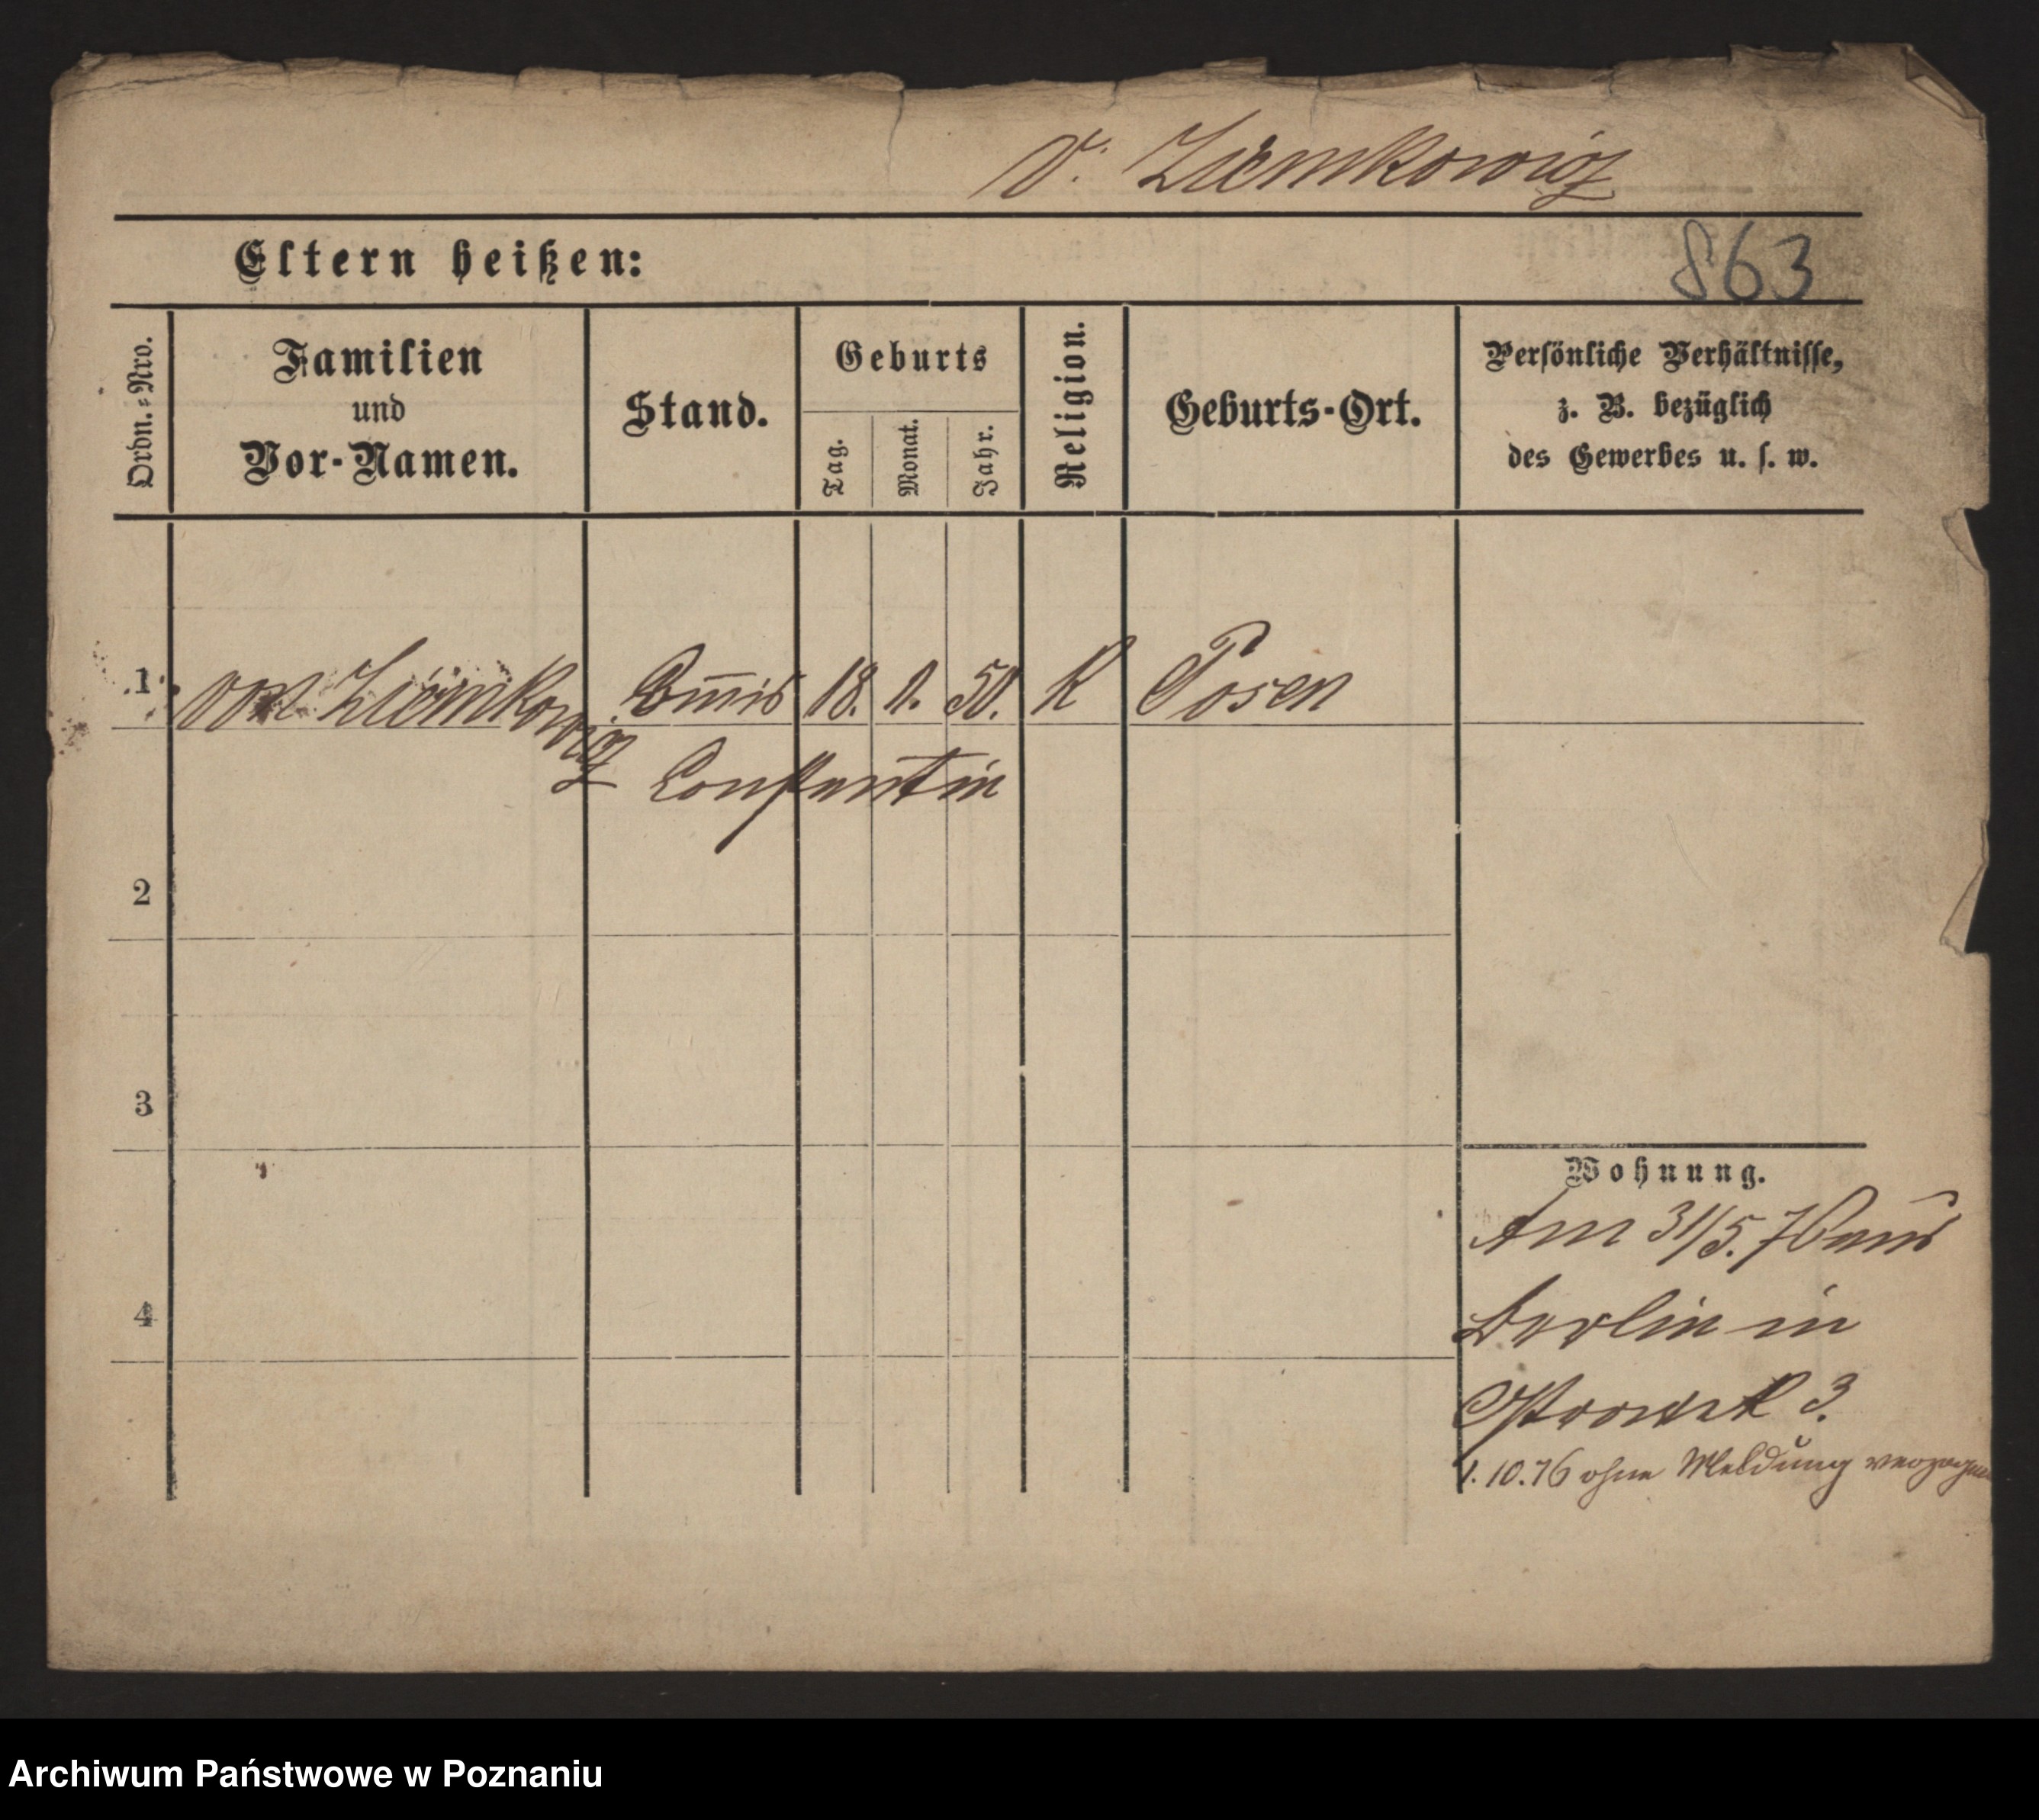 v. Ziemkowicz
Eltern heißen:
863
Ordn.-Nro.
Familien
und
Vor-Namen.
Stand.
Geburts
Tag.
Monat.
Jahr.
Religion.
Geburts-Ort.
Persönliche Verhältnisse,
z. B. bezüglich
des Gewerbes u. s. w.
1 von Ziemkowicz Com̅is 18. 1. 50. K Posen
Constantin
2
3
Wohnung.
Am 31/5. 76 aus
Berlin in
4
Ostrowek 3.
1. 10. 76 ohne Meldung verzogen
Archiwum Państwowe w Poznaniu